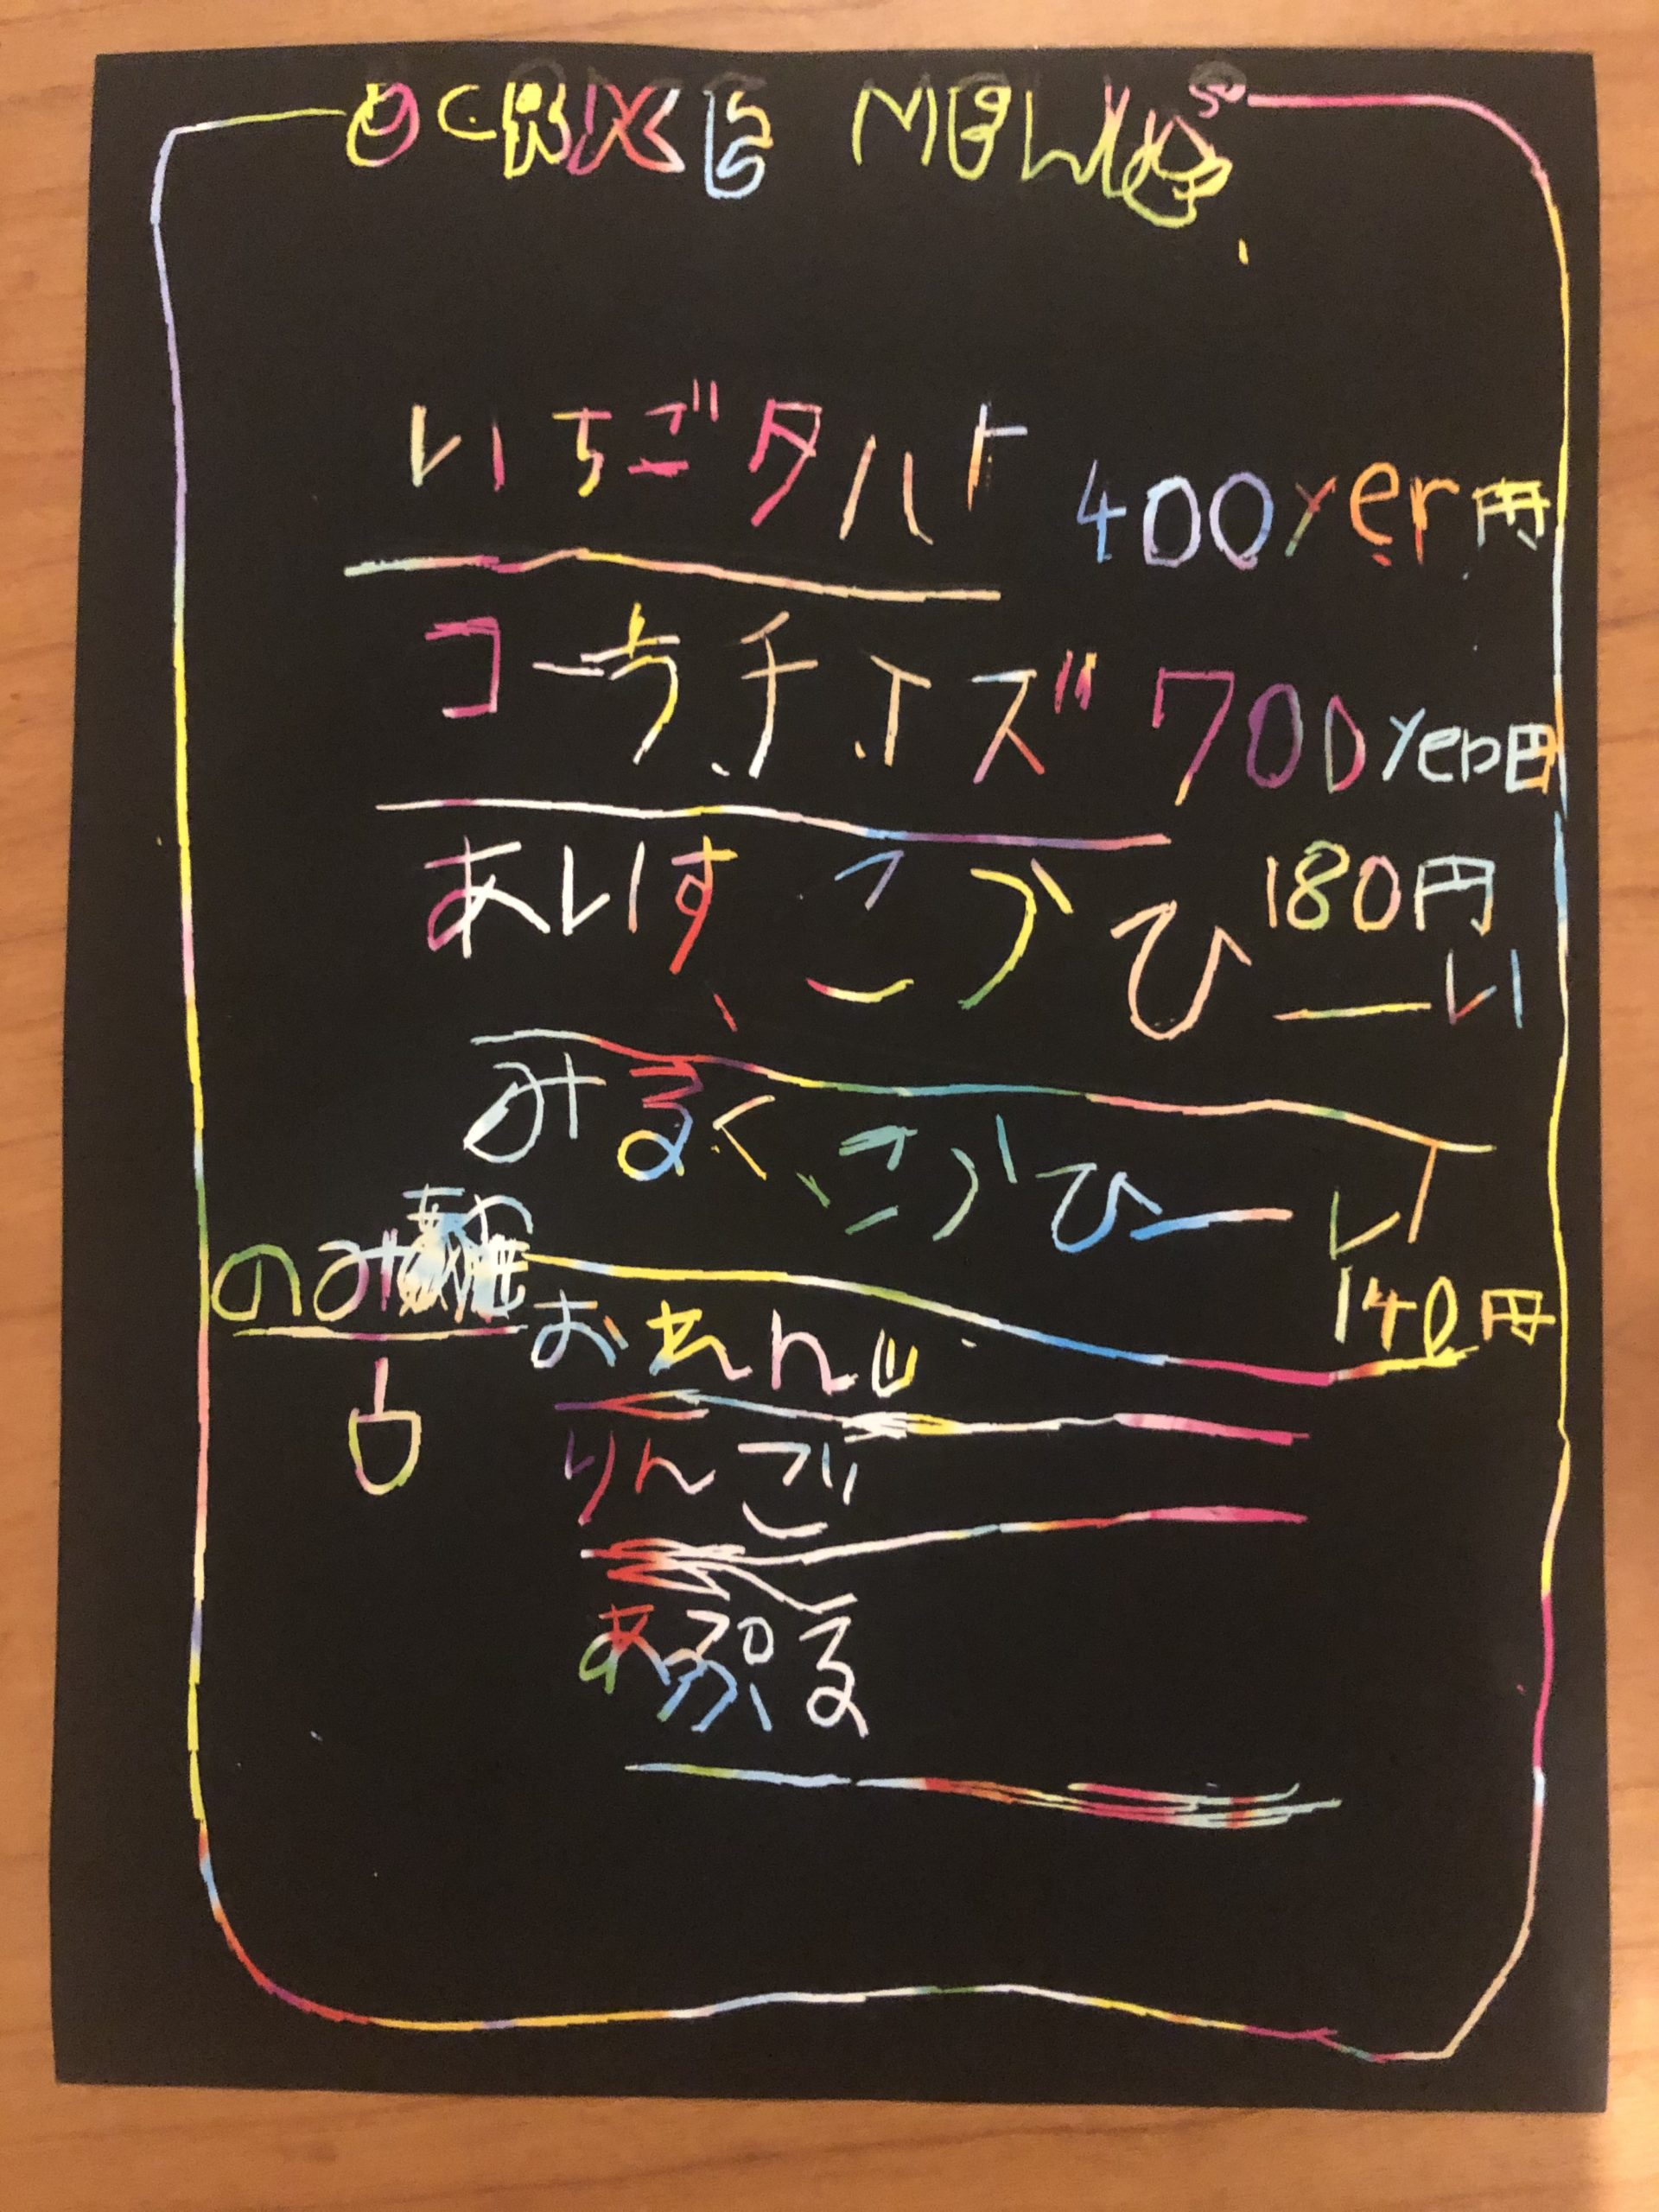 いちごタルト 400yen円
コーラチーズ 700yen円
あいすこかひーい 180円
みるくこかひーい
140円
のみ物
おれんじ
りんご
あぷる